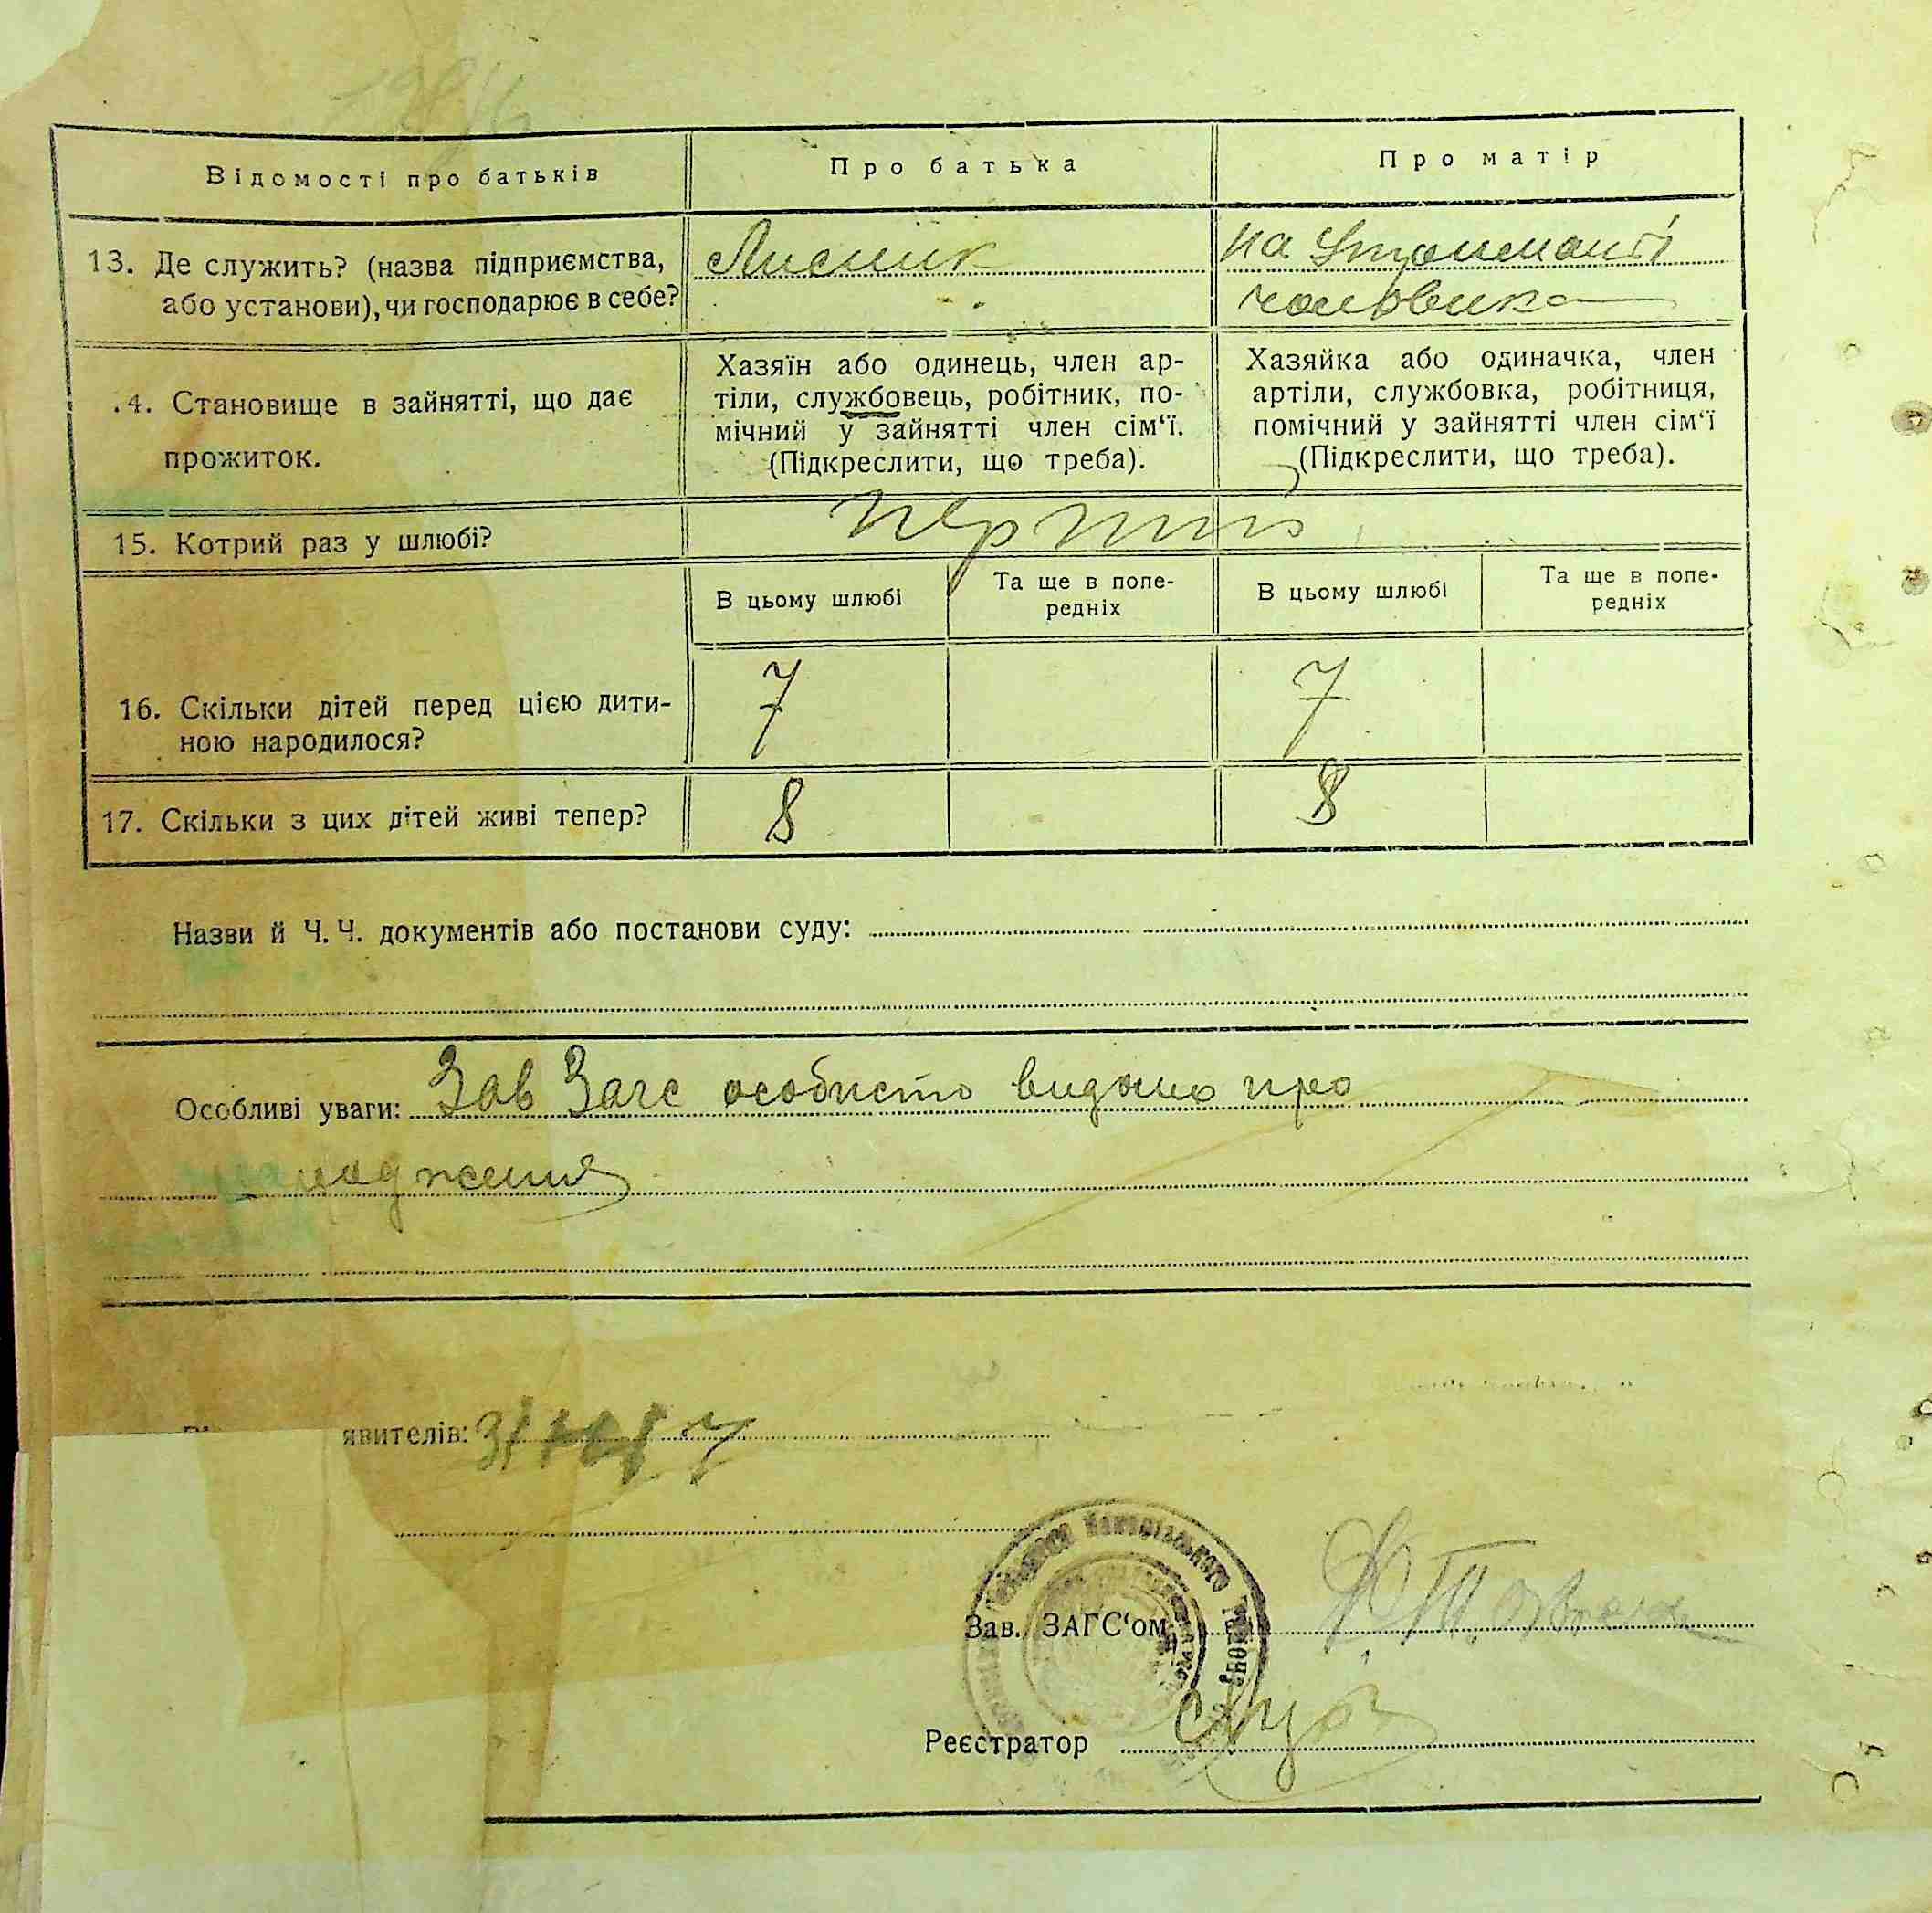 Відомості про батьків
Про батька
Про матір
13. Де служить? (назва підприємства,
або установи), чи господарює в себе?
Лисник
на утриманті
чоловика
.4. Становище в зайнятті, що дає
прожиток.
Хазяїн або одинець, член ар-
тіли, службовець, робітник, по-
мічний у зайнятті член сім‘ї.
(Підкреслити, що треба).
Хазяйка або одиначка, член
артіли, службовка, робітниця,
помічний у зайнятті член сім‘ї
(Підкреслити, що треба).
15. Котрий раз у шлюбі?
перший
В цьому шлюбі
Та ще в попе-
редніх
В цьому шлюбі
Та ще в попе-
редніх
16. Скільки дітей перед цією дити-
ною народилося?
7
7
17. Скільки з цих дітей живі тепер?
8
8
Назви й Ч. Ч. документів або постанови суду:
Особливі уваги: Зав Загс особисто видано про
народження
явителів:
Зав. ЗАГС‘ом
Реєстратор